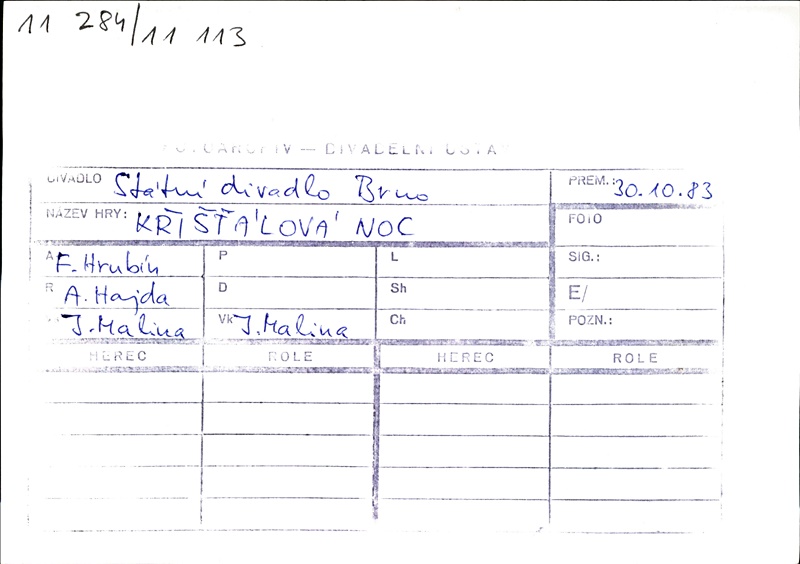 11 284/11 113
FOTOARCHIV — DIVADELNÍ ÚSTAV
DIVADLO Státní divadlo Brno PREM.: 30.10.83
NÁZEV HRY: KŘIŠŤÁLOVÁ NOC FOTO
A F. Hrubín P L SIG.:
R A. Hajda D Sh E/
J. Malina Vk J. Malina Ch POZN.:
HEREC ROLE HEREC ROLE